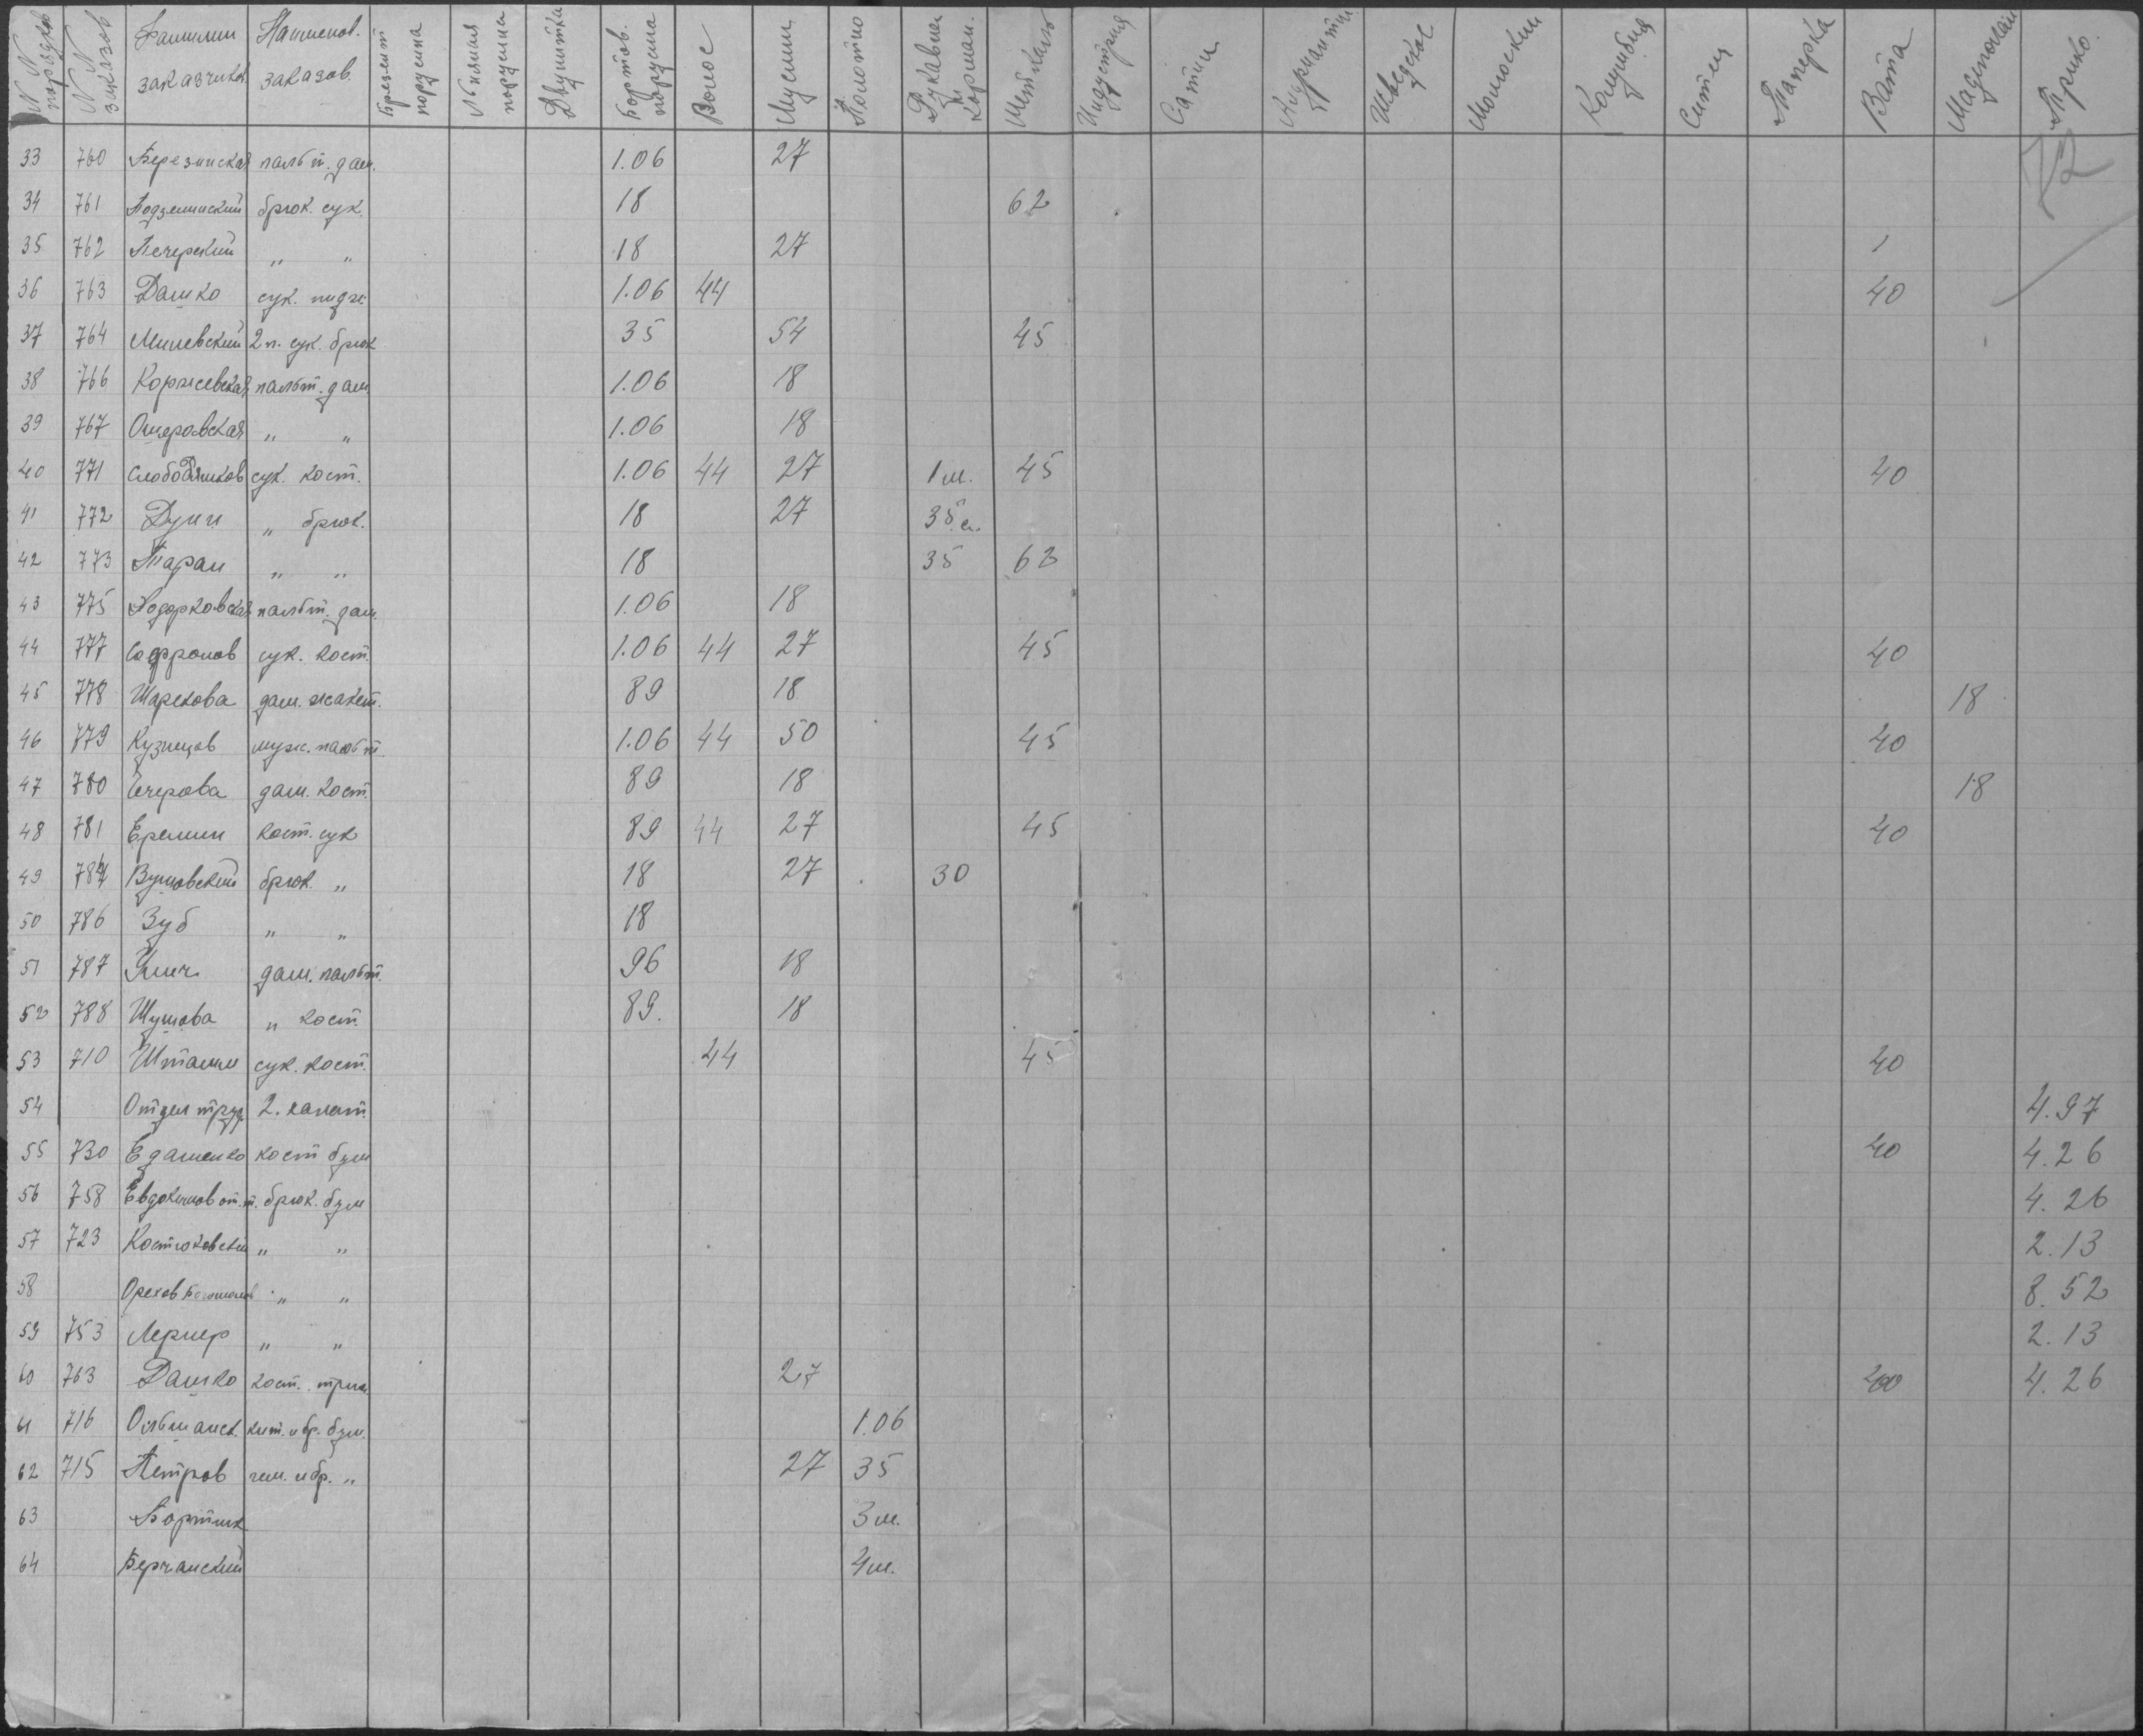 №№ порядков №№ заказов Фамилии заказчиков Наименов. заказов. Брезент парусина Льняная парусина Двунитка Бортов. парусина Волос Муслин Полотно Рукавная и карман. Миткаль Индустрия Сатин Шведское Молоскин Колумбия Ситец Ватa Мадеполам Трико.
72
33 760 Березинская пальт. дам. 1.06 27
34 761 Подземский брюк. сук. 18 62
35 762 Печерский „ „ 18 27 1
36 763 Дашко сук. пидж. 1.06 44 40
37 764 Милевский 2 п. сук. брюк 35 54 45
38 766 Коржевская пальт. дам. 1.06 18
39 767 Ошеровская „ „ 1.06 18
40 771 Слободяников сук. кост. 1.06 44 27 1 м. 45 40
41 772 Дунн „ брюк. 18 27 35 с.
42 773 Таран „ „ 18 35 62
43 775 Ходорковская пальт. дам. 1.06 18
44 777 Софронов сук. кост. 1.06 44 27 45 40
45 778 Шарекова дам. жакет. 89 18 18
46 779 Кузнецов муж. пальт. 1.06 44 50 45 40
47 780 дам. кост. 89 18 18
48 781 Еремин кост. сук 89 44 27 45 40
49 784 брюк. „ 18 27 30
50 786 Зуб „ „ 18
51 787 дам. пальт. 96 18
52 788 Шумова „ кост. 89. 18
53 710 Штамм сук. кост. 44 45 40
54 Отдел труд. 2. халат. 4.97
55 730 Едаменко кост бум 40 4.26
56 758 Евдокимов от. т. брюк. бум 4.26
57 723 Костюковский „ „ 2.13
58 Орехов „ „ 8.52
59 753 Лернер „ „ 2.13
60 763 Дашко кост. трик. 27 40 4.26
61 716 Ольшанск. кит. и бр. бум. 1.06
62 715 Петров гим. и бр. „ 27 35
63 Бортник 3 м.
64 Берчанский 4 м.